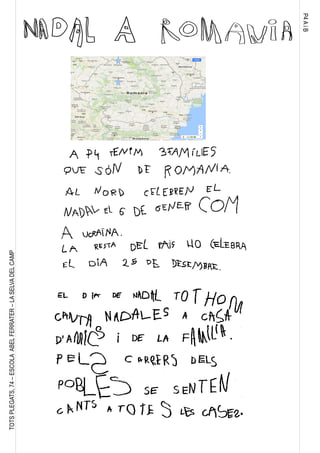 NADAL A ROMANIA
P4 A i B
Romania
A P4 TENIM 3 FAMILES
QUE SÓN DE ROMANIA.
AL NORD CELEBREN EL
NADAL EL 6 DE GENER COM
A UCRAÏNA.
LA RESTA DEL PAIS HO CELEBRA
EL DIA 25 DE DESEMBRE.
EL DIA DE NADAL TOTHOM
CANTA NADALES A CASA
D'AMICS I DE LA FAMÍLIA.
PELS CARRERS DELS
POBLES SE SENTEN
CANTS A TOTES LES CASES.
TOTS PLEGATS, 74 – ESCOLA ABEL FERRATER – LA SELVA DEL CAMP